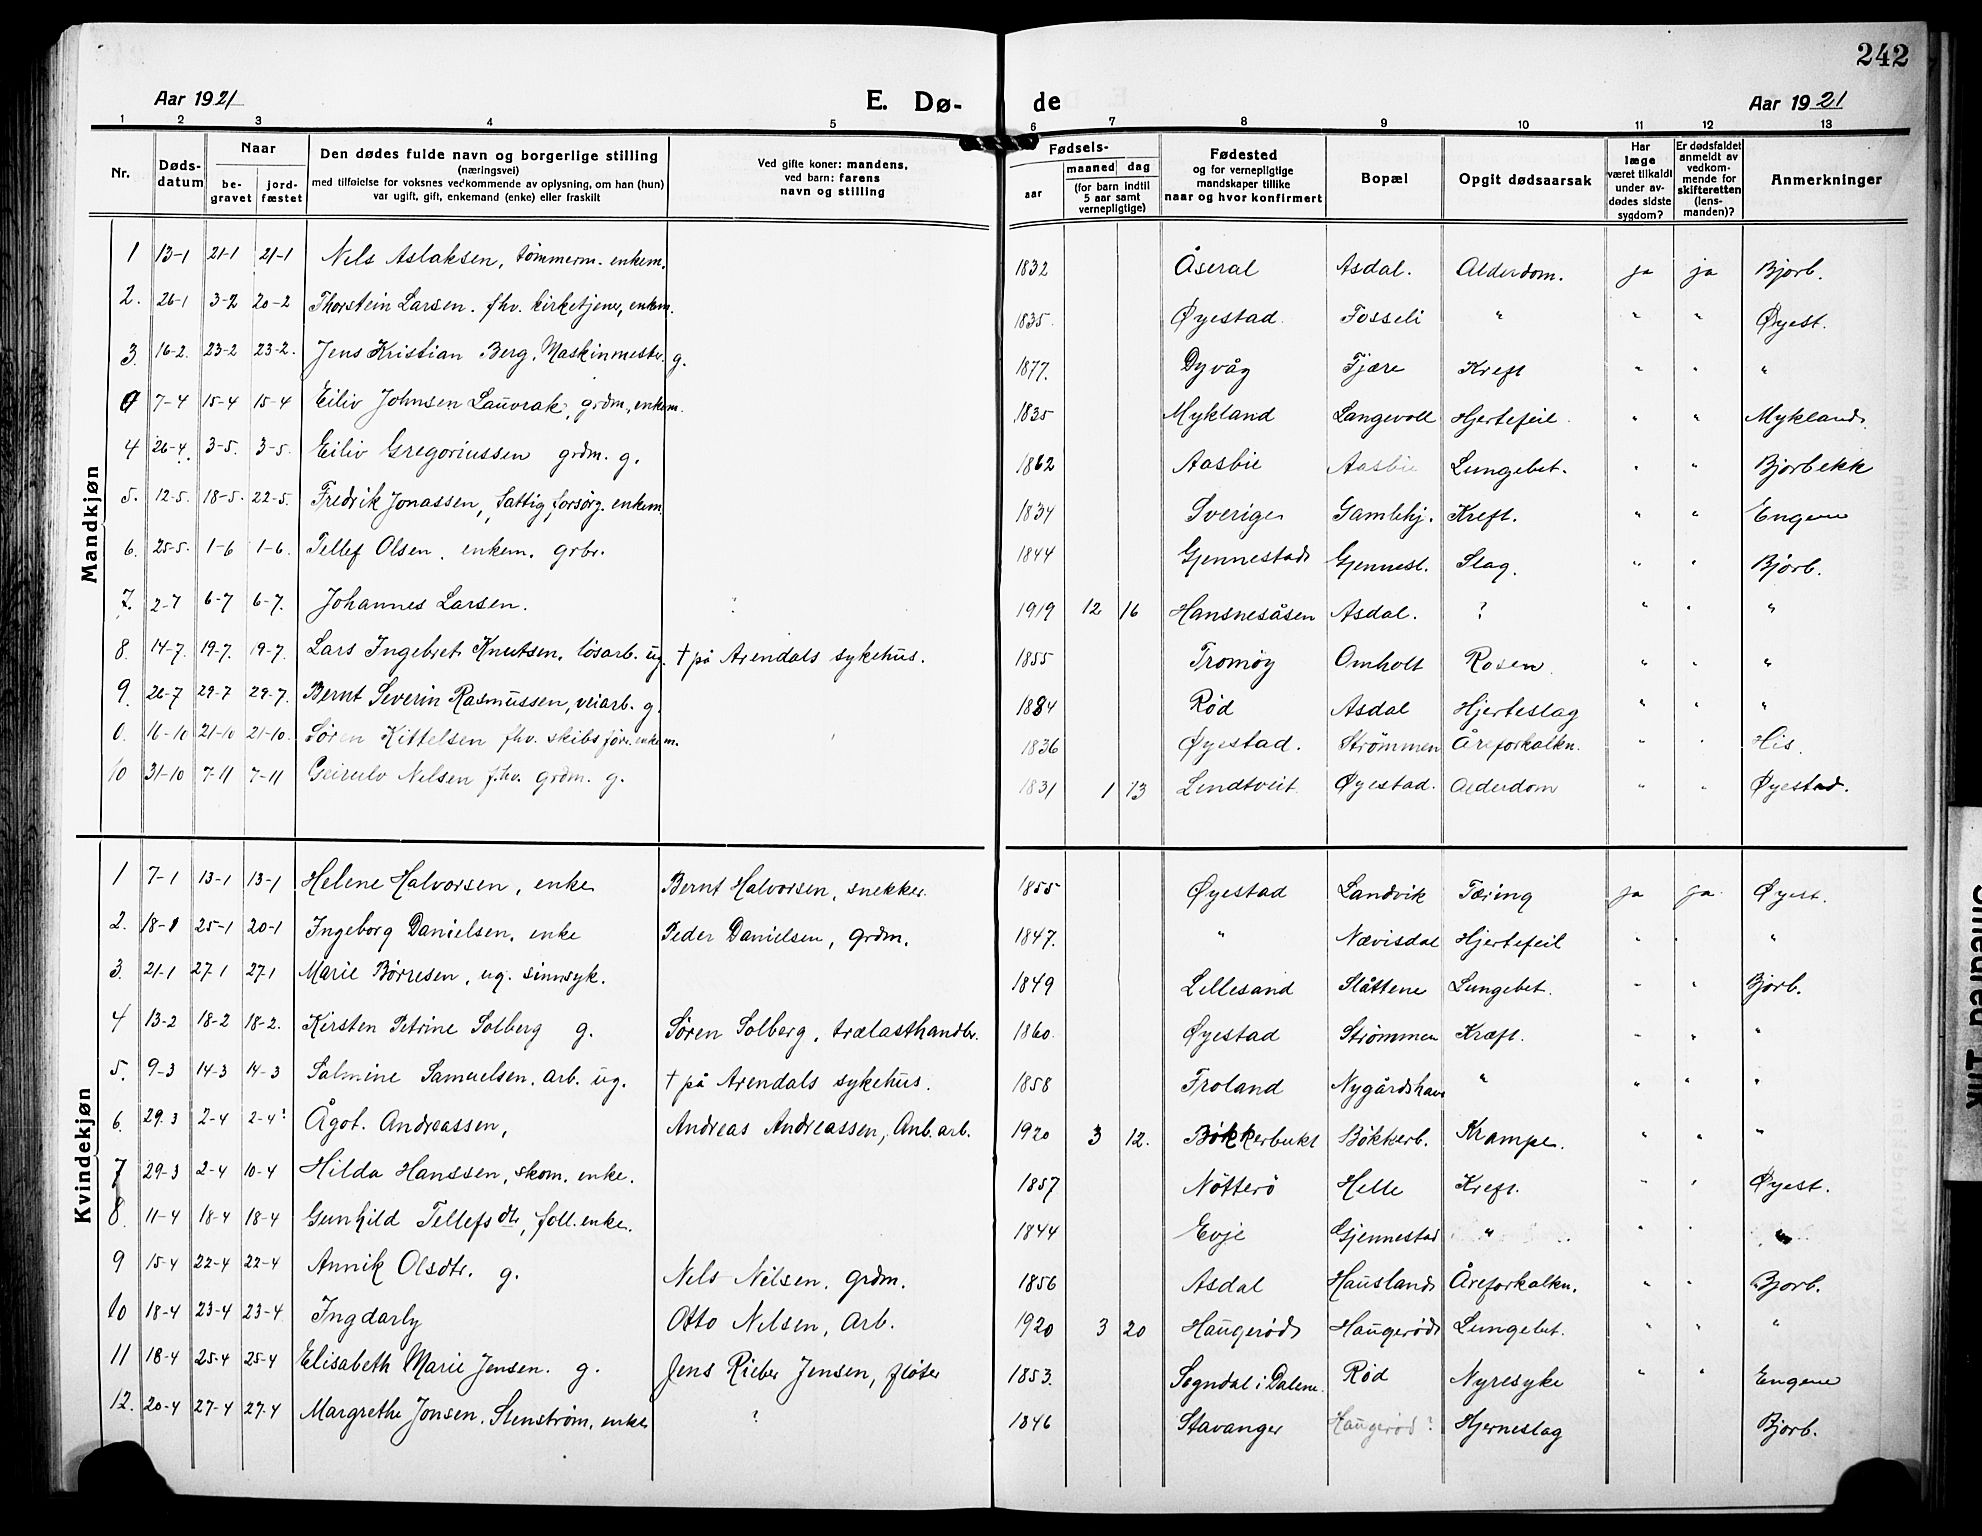 242
Aar 1921 E. Dø- de Aar 1921
1 2 3 4 5 6 7 8 9 10 11 12 13
Nr. Døds-datum Naar be-gravet jord-fæstet Den dødes fulde navn og borgerlige stilling (næringsvei) med tilføielse for voksnes vedkommende av oplysning, om han (hun) var ugift, gift, enkemand (enke) eller fraskilt Ved gifte koner: mandens, ved barn: farens navn og stilling Fødsels- aar maaned dag (for barn indtil 5 aar samt vernepligtige) Fødested og for vernepligtige mandskaper tillike naar og hvor konfirmert Bopæl Opgit dødsaarsak Har læge været tilkaldt under av-dødes sidste sygdom? Er dødsfaldet anmeldt av vedkom-mende for skifteretten (lens-manden)? Anmerkninger
Mandkjøn
1 13-1 21-1 21-1 Nels Aslaksen, tømmerm. enkem. 1832 Åseral Asdal. Alderdom. ja ja Bjorb.
2. 26-1 3-2 20-2 Thorstein Larsen. fhv. kirketjener, enkem. 1835. Øyestad. Fosseli " " " Øyest.
3. 16-2. 23-2 23-2. Jens Kristian Berg, Maskinmester. g. 1877. Dyvåg Fjære Kreft " " "
0 7-4 15-4 15-4 Eiliv Johnsen Lauvrak, grdm., enkem. 1835 Mykland Langevoll Hjertefeil. " " Myklands
4 26-4. 3-5. 3-5. Eiliv Gregoriussen grdm. g. 1862 Aasbie Aasbie Lungebet. " " Bjorbekk
5. 12-5. 18-5. 22-5. Fredrik Jonassen, fattig forsørg. enkem. 1834 Sverige Gamlehj. Kreft. " " Engene
6. 25-5. 1-6 1-6. Tellef Olsen, enkem. grbr. 1844 Gjennestad Gjennest. Slag. " " Bjorb.
7. 2-7 6-7 6-7. Johannes Larsen. ? 1919 12 16 Hansnesåsen Asdal. ? " " "
8. 14-7. 19-7. 19-7. Lars Ingebret Knutsen, løsarb. ug. † på Arendals sykehus. 1855 Tromøy Omholt Rosen. " " "
9. 26-7 29-7 29-7. Bernt Severin Rasmussen, veiarb. g. 1884 Rød Asdal Hjerteslag " " "
0. 16-10 21-10 21-10. Søren Kittelsen fhv. skibsfører. enkem. 1836 Øyestad. Strømmen Åreforkalkn. " " His.
10 31-10 7-11 7-11 Geirulv Nelsen fhv. grdm. g. 1831 1 13 Lindtveit Øyestad. Alderdom " " Øyestad.
Kvindekjøn
1 7-1 13-1 13-1 Helene Halvorsen, enke Bernt Halvorsen, snekker. 1855 Øyestad Landvik Tæring ja ja Øyest.
2. 18-1 25-1 20-1 Ingeborg Danielsen, enke Peder Danielsen, grdm. 1847. " Nævisdal Hjertefeil " " "
3. 21-1 27-1 27-1 Marie Børresen, ug. sinnsyk. 1849 Lillesand Slåttene Lungebet. " " Bjorb.
4 13-2 18-2 18-2. Kirsten Petrine Solberg g. Søren Solberg, trælasthandler. 1860. Øyestad Strømmen Kræft. " " "
5. 9-3 14-3 14-3 Salmine Samuelsen, arb. ug. † på Arendals sykehus. 1858 Froland Nygårdshave " " " "
6. 29.3 2-4 2-4? Ågot. Andreassen, Andreas Andreassen, Anb. arb. 1920 3 12. Bøkkerbukt Bøkkerb. Krampe. " " "
7 29-3 2-4 10-4 Hilda Hanssen, skom. enke. 1857 Nøtterø Helle Kreft. " " Øyest.
8. 11-4 18-4 18-4 Gunhild Tellefsdtr, foll. enke. 1844 Evje Gjennestad " " " "
9 15-4 22-4 22-4 Annik Olsdtr. g. Nels Nilsen, grdm. 1856 Asdal Hausland Åreforkalkn. " " Bjorb.
10 18-4 23-4 23-4 Ingdarly Otto Nelsen, arb. 1920 3 20 Haugerød Haugerød Lungebet. " " "
11 18-4 25-4 25-4 Elisabeth Marie Jensen. g. Jens Rieber Jensen, fløter 1853. Sogndal i Dalene Rød Nyresyke " " Engene
12. 20-4 27-4 27-4 Margrethe Jonsen. Stenstrøm, enke ? 1846 Stavanger Haugerød? Hjerneslag Bjorb.